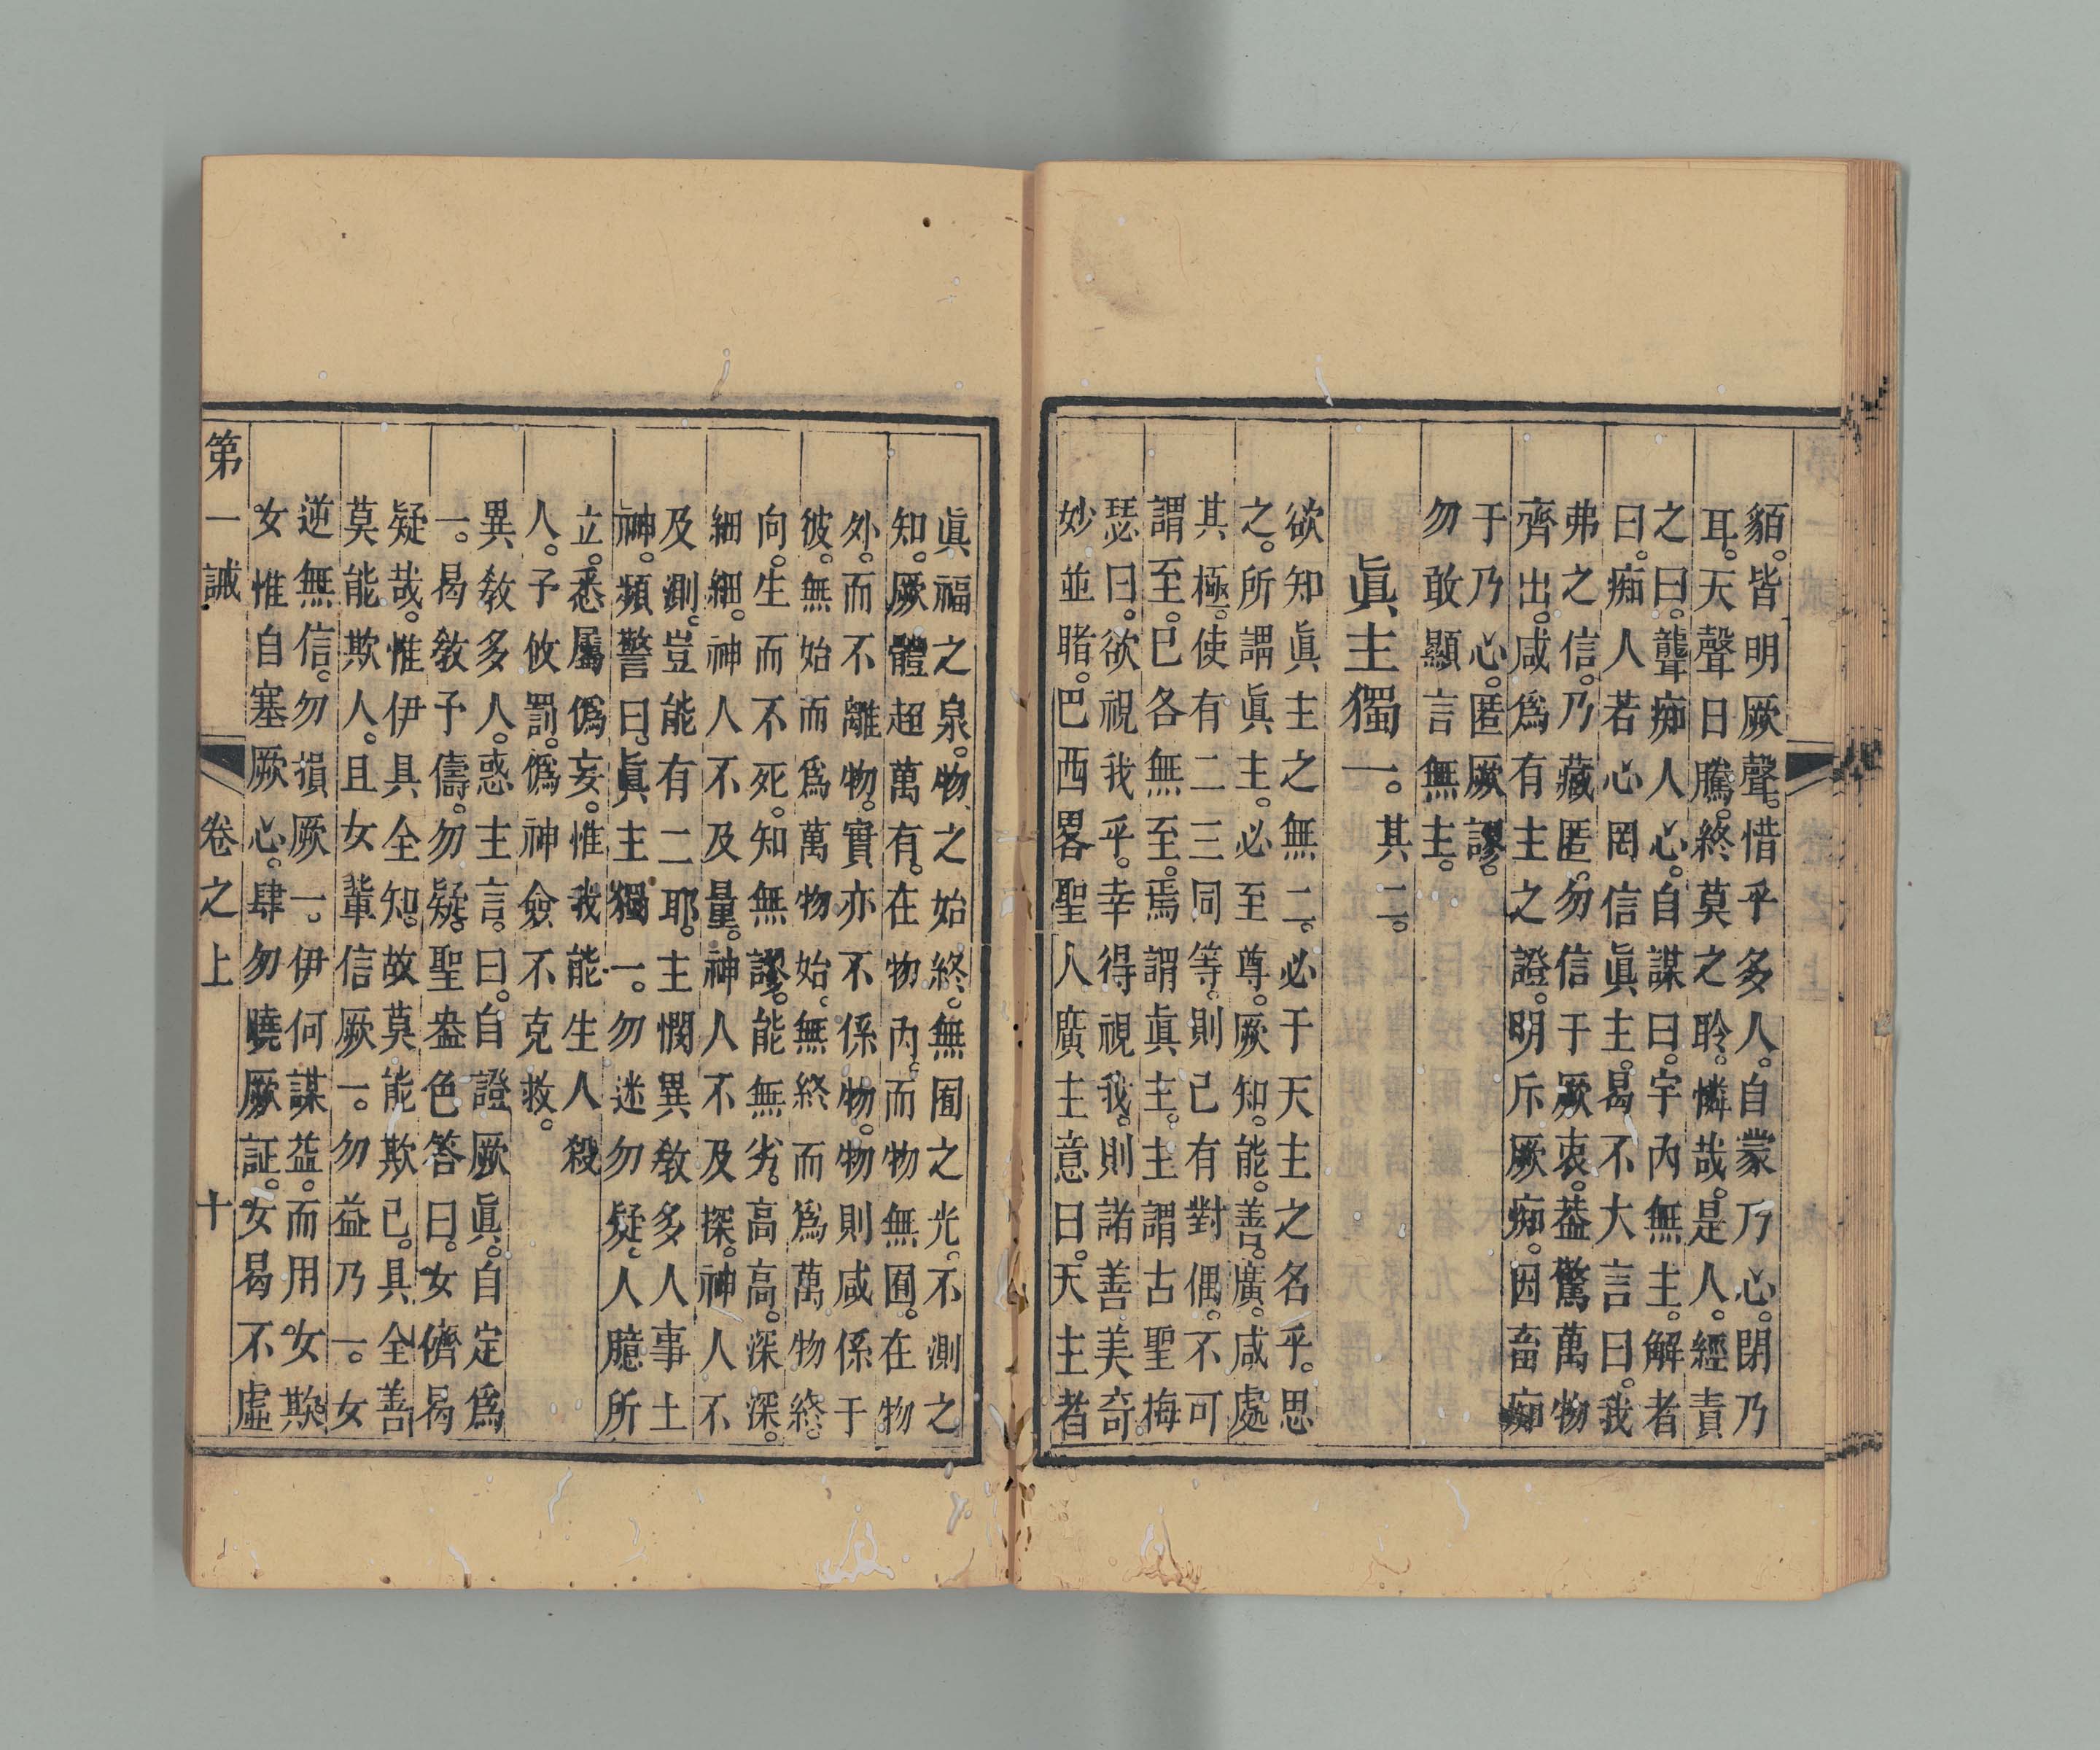 貊。皆明厥聲。惜乎多人。自蒙乃心。閉乃
耳。天聲日騰。終莫之聆。憐哉。是人。經責
之曰。聾痴人心。自謀曰。宇內無主。解者
曰。痴人若心罔信眞主。曷不大言曰。我
弗之信。乃藏匿。勿信于厥衷。葢驚萬物
齊出。咸爲有主之證。明斥厥痴。因畜痴
于乃心。匿厥謬。
勿敢顯言無主。
眞主獨一。其二。
欲知眞主之無二。必于天主之名乎。思
之。所謂眞主。必至尊。厥知。能。善。廣。咸處
其極。使有二三同等。則已有對偶。不可
謂至。已各無至。焉謂眞主。主謂古聖梅
瑟曰。欲視我乎。幸得視我。則諸善美奇
妙並睹。巴西畧聖人廣主意曰。天主者
眞福之泉。物之始終。無囿之光。不測之
知。厥體超萬有。在物內。而物無囿。在物
外。而不離物。實亦不係物。物則咸係于
彼。無始而爲萬物始。無終而爲萬物終。
向。生而不死。知無謬。能無劣。高高。深深。
細細。神人不及量。神人不及探。神人不
及測。豈能有二耶。主憫異教多人事土
神。頻警曰。眞主獨一。勿迷勿疑。人臆所
立。悉屬僞妄。惟我能生人殺
人。予攸罰。僞神僉不克救。
異教多人。惑主言。曰。自證厥眞。自定爲
一。曷教予儔。勿疑。聖盎色答曰。女儕曷
疑哉。惟伊具全知。故莫能欺已。具全善
莫能欺人。且女輩信厥一。勿益乃一。女
逆無信。勿損厥一。伊何謀益。而用女欺
女惟自塞厥心。肆勿曉厥証。女曷不虛
第一誡　卷之上　十